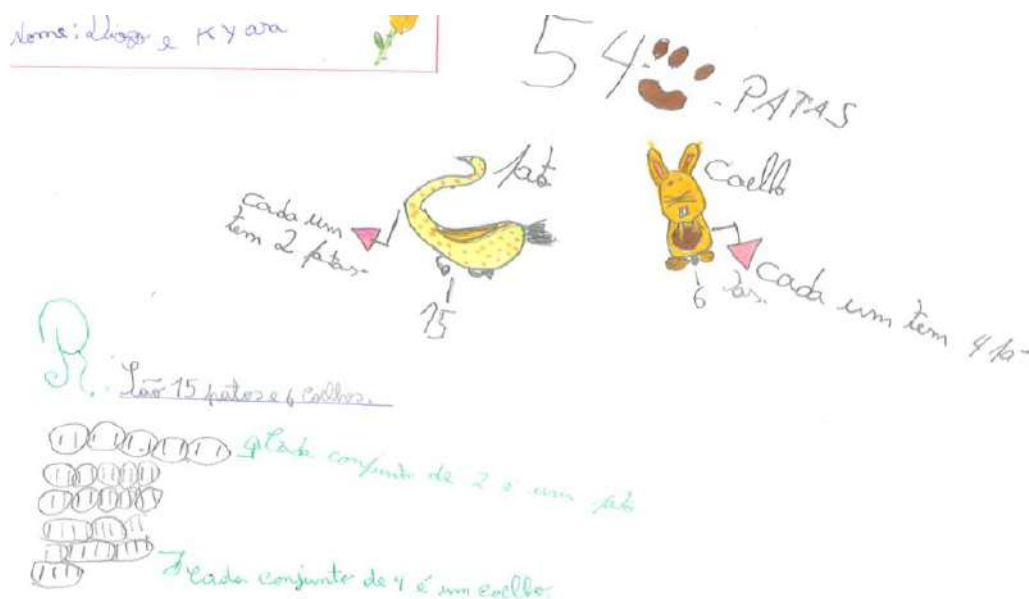 Nome: Diogo e Kyara
54 . PATAS
pato
Coelho
cada um
tem 2 patas.
15
6
Cada um tem 4 pa-
tas.
R: São 15 patos e 6 coelhos.
Cada conjunto de 2 é um pato
cada conjunto de 4 é um coelho.